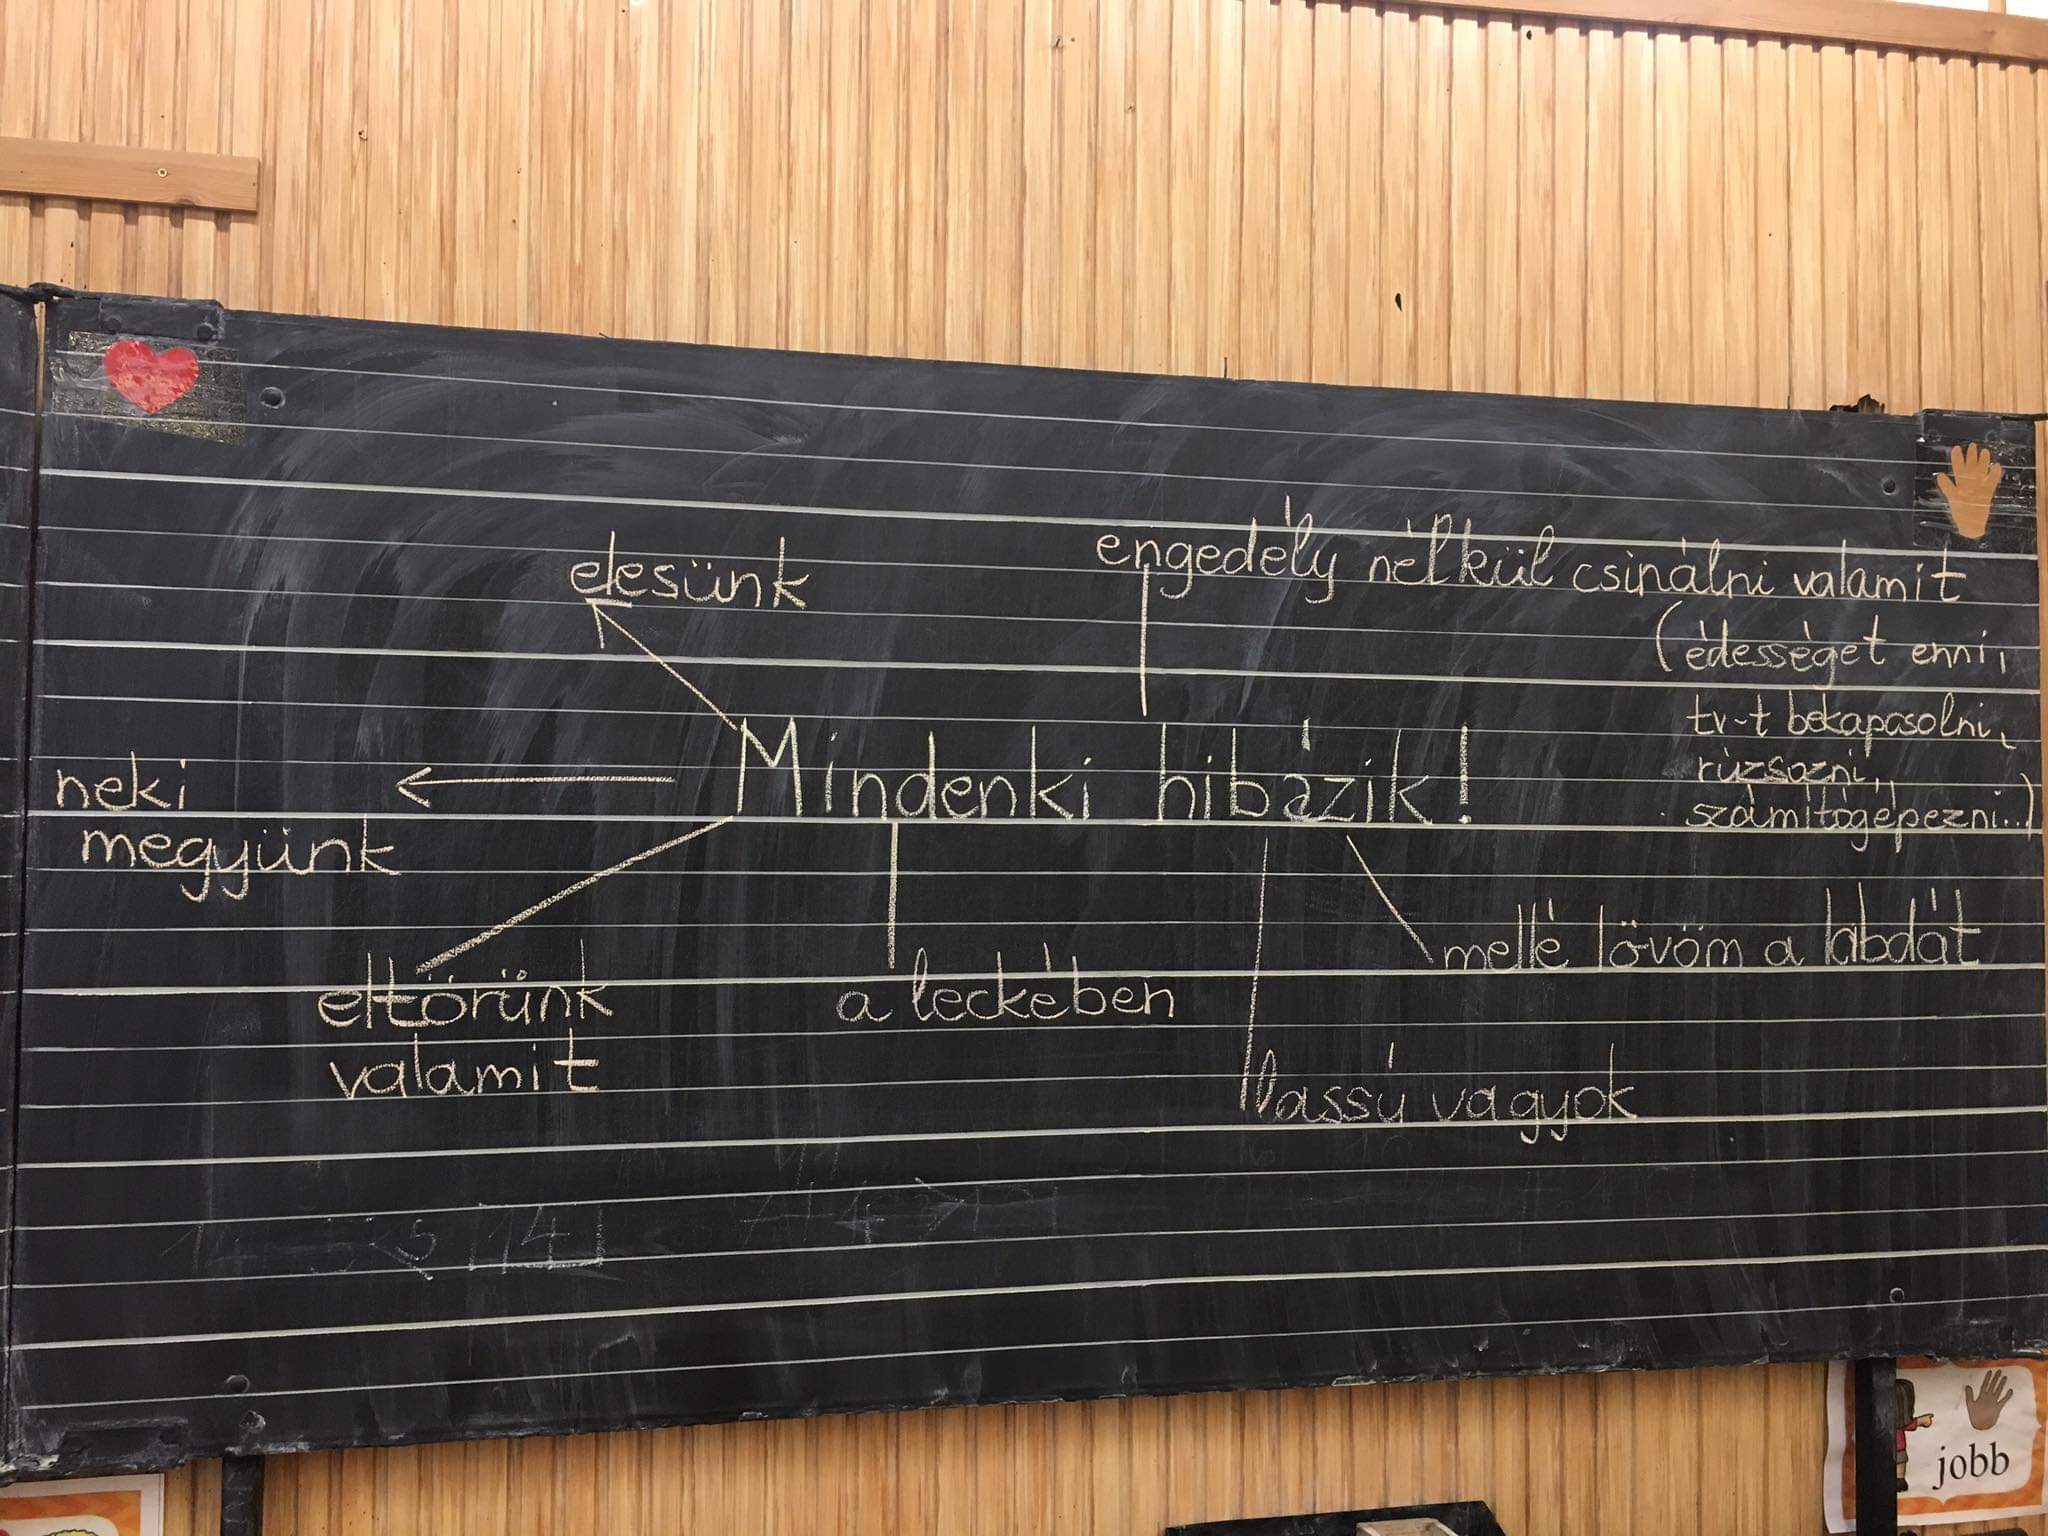 elesünk
engedély nélkül csinálni valamit
(édességet enni,
tv-t bekapcsolni,
rúzsozni,
számítógépezni...)
Mindenki hibázik!
neki
megyünk
eltörünk
valamit
a leckében
mellé lövöm a labdát
lassú vagyok
jobb